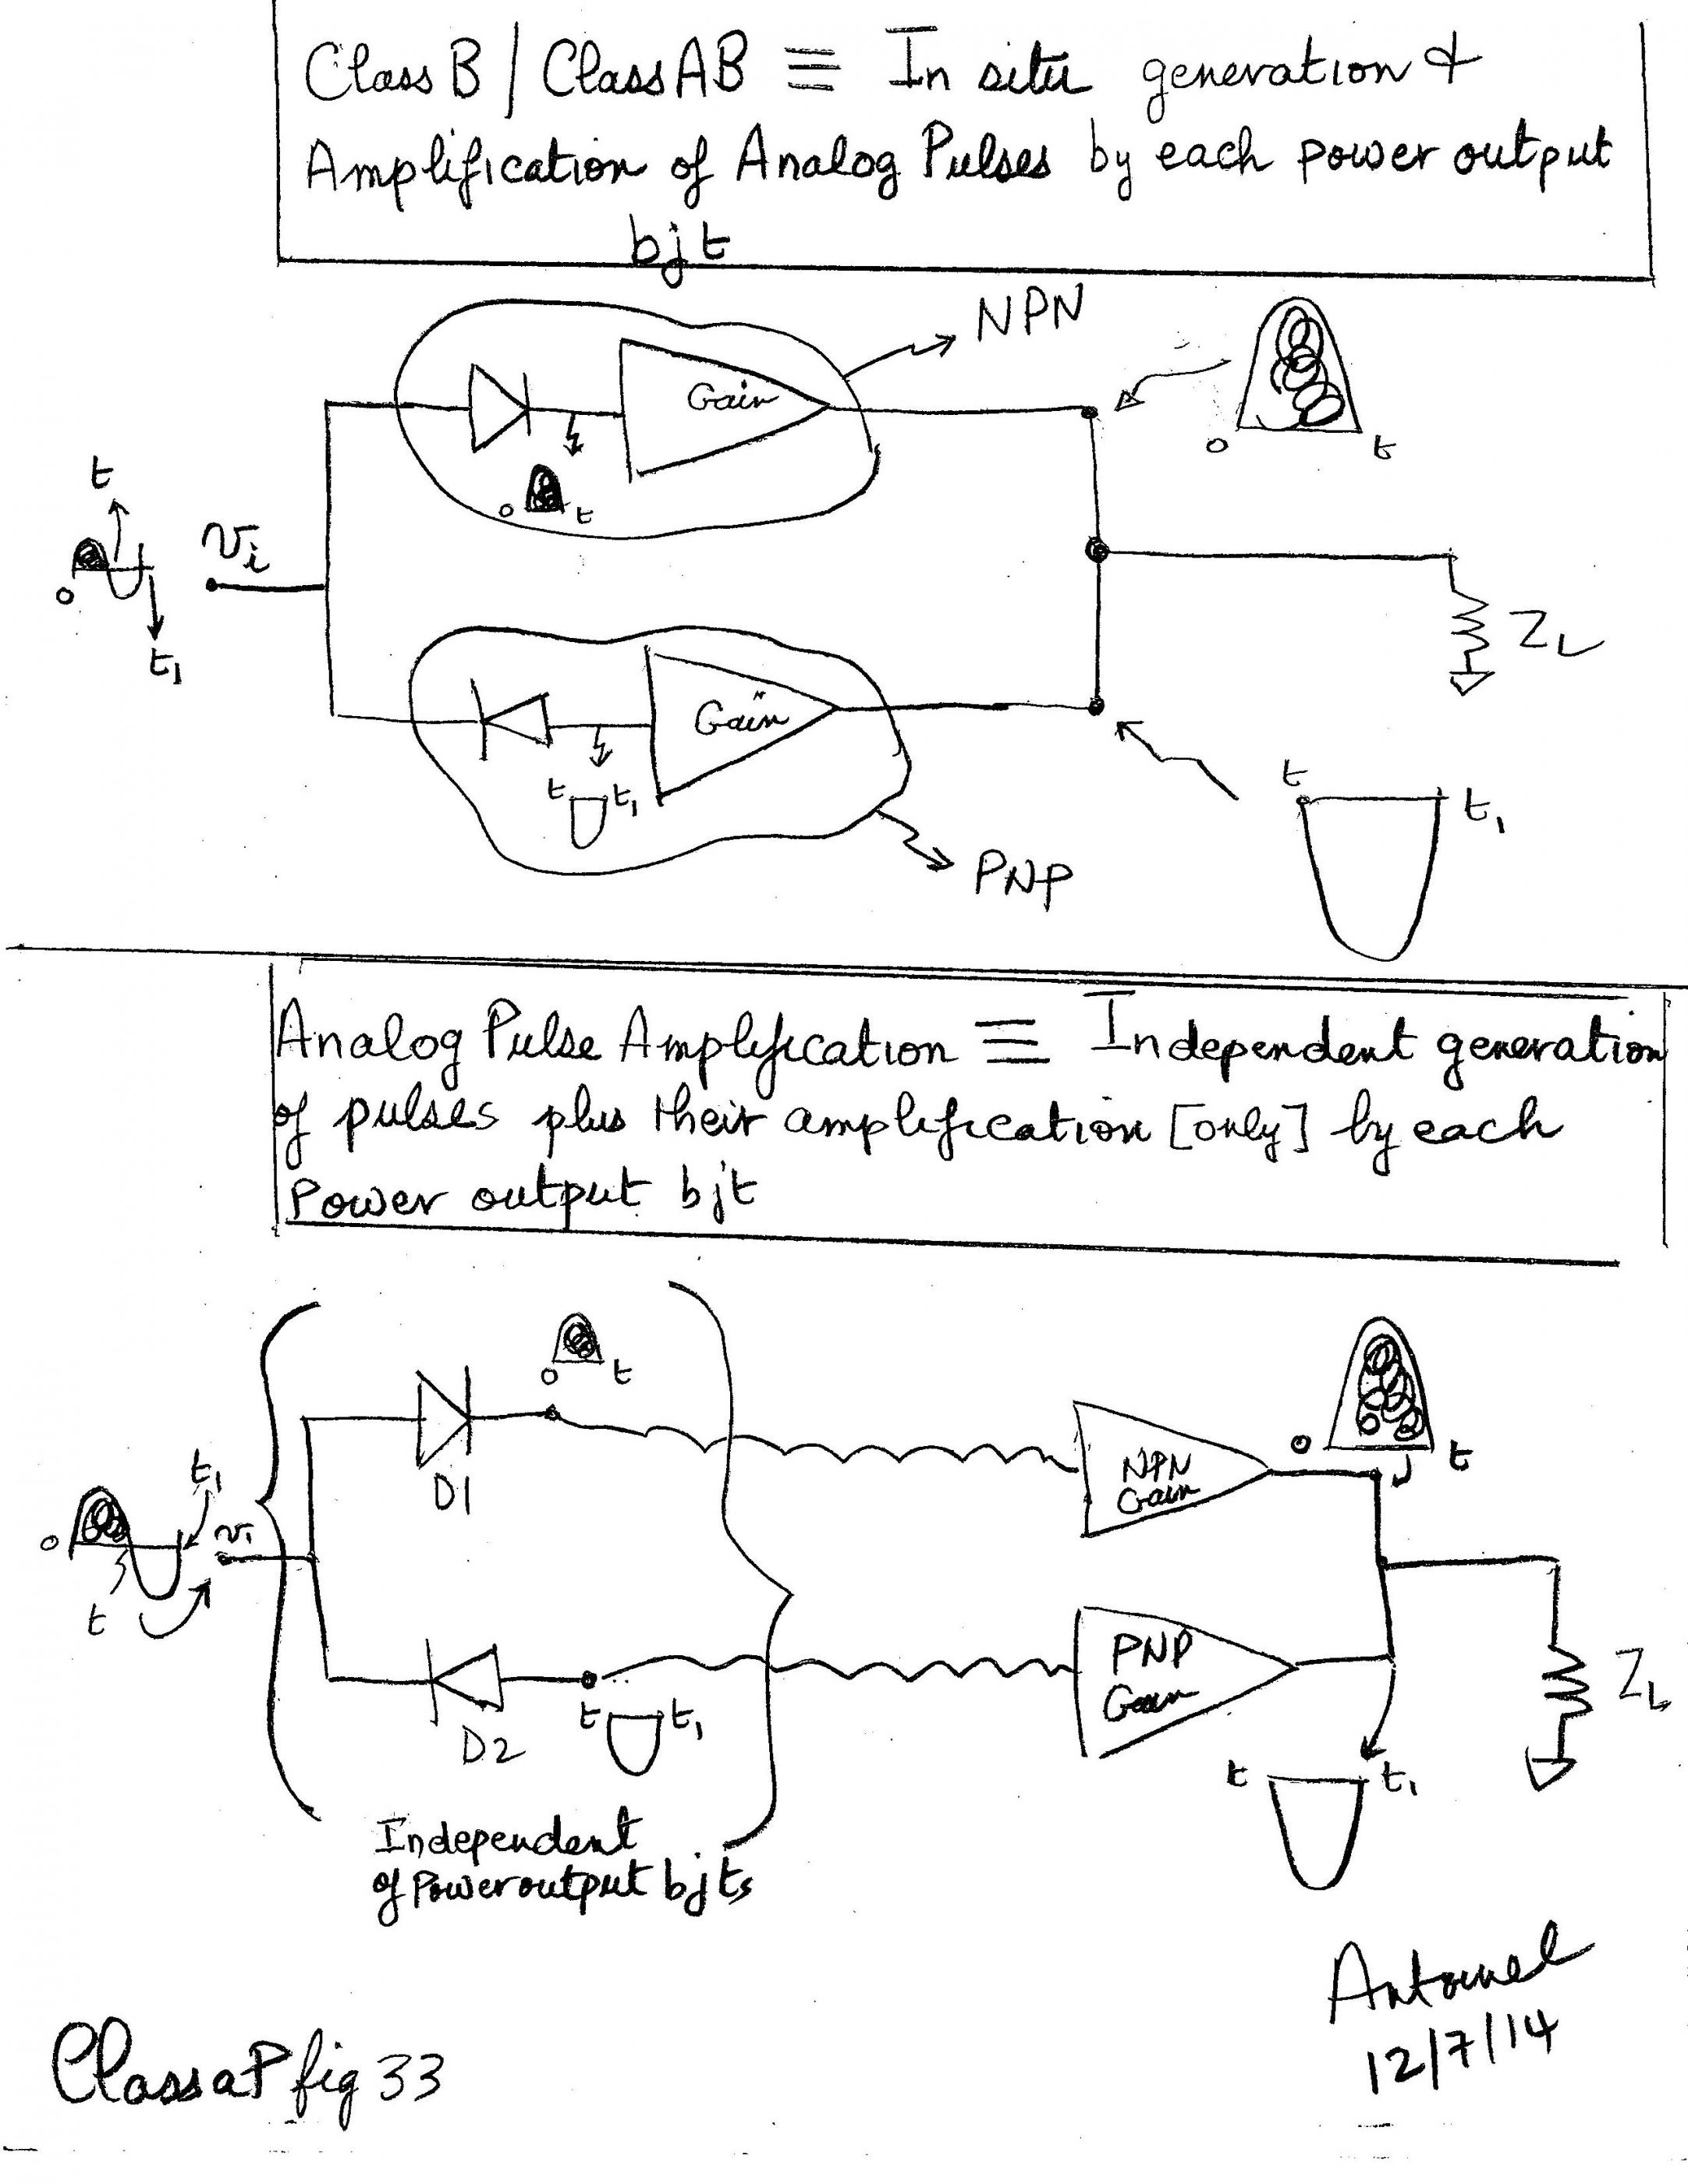 Class B / Class AB ≡ In situ generation &
Amplification of Analog Pulses by each power output
bjt
NPN
Gain
o t
o t
t
vi
o
t1
ZL
Gain
t t1
t
t1
PNP
Analog Pulse Amplification ≡ Independent generation
of pulses plus their amplification [only] by each
Power output bjt
o t
D1
NPN
Gain
o t
t1
o
vi
t
D2
t t1
PNP
Gain
ZL
t t1
Independent
of Power output bjts
12/7/14
Class aP fig 33